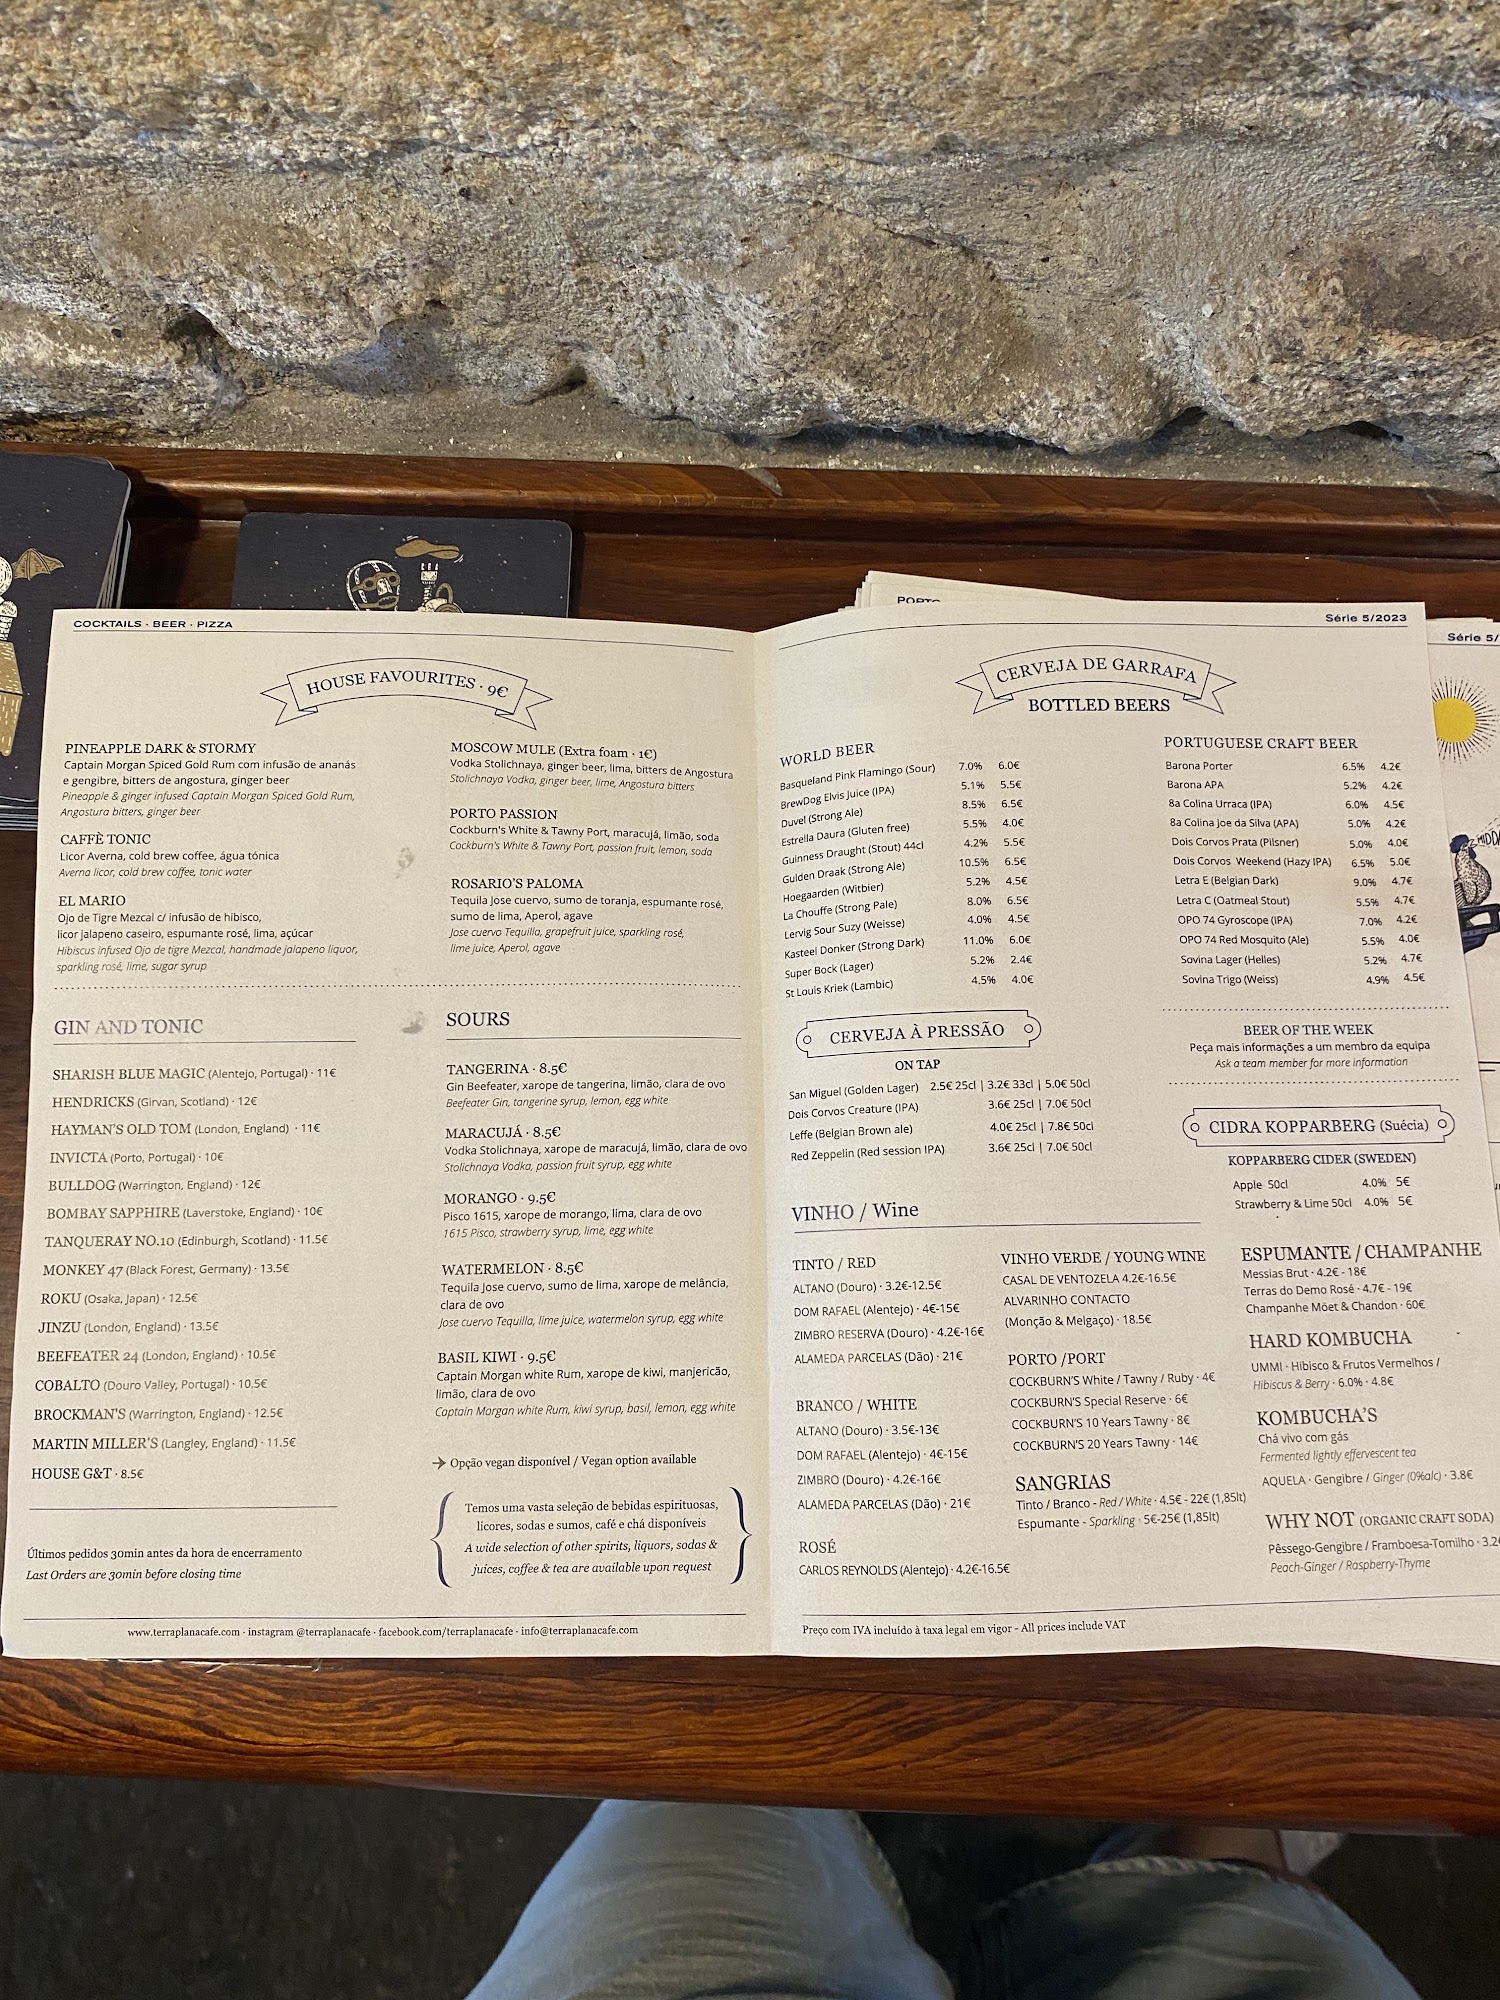 COCKTAILS · BEER · PIZZA
HOUSE FAVOURITES · 9€
PINEAPPLE DARK & STORMY
Captain Morgan Spiced Gold Rum com infusão de ananás
e gengibre, bitters de angostura, ginger beer
Pineapple & ginger infused Captain Morgan Spiced Gold Rum,
Angostura bitters, ginger beer
CAFFÈ TONIC
Licor Averna, cold brew coffee, água tónica
Averna licor, cold brew coffee, tonic water
EL MARIO
Ojo de Tigre Mezcal c/ infusão de hibisco,
licor jalapeno caseiro, espumante rosé, lima, açúcar
Hibiscus infused Ojo de tigre Mezcal, handmade jalapeno liquor,
sparkling rosé, lime, sugar syrup
MOSCOW MULE (Extra foam · 1€)
Vodka Stolichnaya, ginger beer, lima, bitters de Angostura
Stolichnaya Vodka, ginger beer, lime, Angostura bitters
PORTO PASSION
Cockburn's White & Tawny Port, maracujá, limão, soda
Cockburn's White & Tawny Port, passion fruit, lemon, soda
ROSARIO'S PALOMA
Tequila Jose cuervo, sumo de toranja, espumante rosé,
sumo de lima, Aperol, agave
Jose cuervo Tequilla, grapefruit juice, sparkling rosé,
lime juice, Aperol, agave
GIN AND TONIC
SHARISH BLUE MAGIC (Alentejo, Portugal) · 11€
HENDRICKS (Girvan, Scotland) · 12€
HAYMAN'S OLD TOM (London, England) · 11€
INVICTA (Porto, Portugal) · 10€
BULLDOG (Warrington, England) · 12€
BOMBAY SAPPHIRE (Laverstoke, England) · 10€
TANQUERAY NO.10 (Edinburgh, Scotland) · 11.5€
MONKEY 47 (Black Forest, Germany) · 13.5€
ROKU (Osaka, Japan) · 12.5€
JINZU (London, England) · 13.5€
BEEFEATER 24 (London, England) · 10.5€
COBALTO (Douro Valley, Portugal) · 10.5€
BROCKMAN'S (Warrington, England) · 12.5€
MARTIN MILLER'S (Langley, England) · 11.5€
HOUSE G&T · 8.5€
Últimos pedidos 30min antes da hora de encerramento
Last Orders are 30min before closing time
SOURS
TANGERINA · 8.5€
Gin Beefeater, xarope de tangerina, limão, clara de ovo
Beefeater Gin, tangerine syrup, lemon, egg white
MARACUJÁ · 8.5€
Vodka Stolichnaya, xarope de maracujá, limão, clara de ovo
Stolichnaya Vodka, passion fruit syrup, egg white
MORANGO · 9.5€
Pisco 1615, xarope de morango, lima, clara de ovo
1615 Pisco, strawberry syrup, lime, egg white
WATERMELON · 8.5€
Tequila Jose cuervo, sumo de lima, xarope de melância,
clara de ovo
Jose cuervo Tequilla, lime juice, watermelon syrup, egg white
BASIL KIWI · 9.5€
Captain Morgan white Rum, xarope de kiwi, manjericão,
limão, clara de ovo
Captain Morgan white Rum, kiwi syrup, basil, lemon, egg white
→ Opção vegan disponível / Vegan option available
Temos uma vasta seleção de bebidas espirituosas,
licores, sodas e sumos, café e chá disponíveis
A wide selection of other spirits, liquors, sodas &
juices, coffee & tea are available upon request
www.terraplanacafe.com · instagram @terraplanacafe · facebook.com/terraplanacafe · info@terraplanacafe.com
Série 5/2023
CERVEJA DE GARRAFA
BOTTLED BEERS
WORLD BEER
Basqueland Pink Flamingo (Sour) 7.0% 6.0€
BrewDog Elvis Juice (IPA) 5.1% 5.5€
Duvel (Strong Ale) 8.5% 6.5€
Estrella Daura (Gluten free) 5.5% 4.0€
Guinness Draught (Stout) 44cl 4.2% 5.5€
Gulden Draak (Strong Ale) 10.5% 6.5€
Hoegaarden (Witbier) 5.2% 4.5€
La Chouffe (Strong Pale) 8.0% 6.5€
Lervig Sour Suzy (Weisse) 4.0% 4.5€
Kasteel Donker (Strong Dark) 11.0% 6.0€
Super Bock (Lager) 5.2% 2.4€
St Louis Kriek (Lambic) 4.5% 4.0€
PORTUGUESE CRAFT BEER
Barona Porter 6.5% 4.2€
Barona APA 5.2% 4.2€
8a Colina Urraca (IPA) 6.0% 4.5€
8a Colina Joe da Silva (APA) 5.0% 4.2€
Dois Corvos Prata (Pilsner) 5.0% 4.0€
Dois Corvos Weekend (Hazy IPA) 6.5% 5.0€
Letra E (Belgian Dark) 9.0% 4.7€
Letra C (Oatmeal Stout) 5.5% 4.7€
OPO 74 Gyroscope (IPA) 7.0% 4.2€
OPO 74 Red Mosquito (Ale) 5.5% 4.0€
Sovina Lager (Helles) 5.2% 4.7€
Sovina Trigo (Weiss) 4.9% 4.5€
CERVEJA À PRESSÃO
ON TAP
San Miguel (Golden Lager) 2.5€ 25cl | 3.2€ 33cl | 5.0€ 50cl
Dois Corvos Creature (IPA) 3.6€ 25cl | 7.0€ 50cl
Leffe (Belgian Brown ale) 4.0€ 25cl | 7.8€ 50cl
Red Zeppelin (Red session IPA) 3.6€ 25cl | 7.0€ 50cl
BEER OF THE WEEK
Peça mais informações a um membro da equipa
Ask a team member for more information
CIDRA KOPPARBERG (Suécia)
KOPPARBERG CIDER (SWEDEN)
Apple 50cl 4.0% 5€
Strawberry & Lime 50cl 4.0% 5€
VINHO / Wine
TINTO / RED
ALTANO (Douro) · 3.2€-12.5€
DOM RAFAEL (Alentejo) · 4€-15€
ZIMBRO RESERVA (Douro) · 4.2€-16€
ALAMEDA PARCELAS (Dão) · 21€
BRANCO / WHITE
ALTANO (Douro) · 3.5€-13€
DOM RAFAEL (Alentejo) · 4€-15€
ZIMBRO (Douro) · 4.2€-16€
ALAMEDA PARCELAS (Dão) · 21€
ROSÉ
CARLOS REYNOLDS (Alentejo) · 4.2€-16.5€
VINHO VERDE / YOUNG WINE
CASAL DE VENTOZELA 4.2€-16.5€
ALVARINHO CONTACTO
(Monção & Melgaço) · 18.5€
PORTO /PORT
COCKBURN'S White / Tawny / Ruby · 4€
COCKBURN'S Special Reserve · 6€
COCKBURN'S 10 Years Tawny · 8€
COCKBURN'S 20 Years Tawny · 14€
SANGRIAS
Tinto / Branco - Red / White · 4.5€ - 22€ (1,85lt)
Espumante - Sparkling · 5€-25€ (1,85lt)
ESPUMANTE / CHAMPANHE
Messias Brut · 4.2€ - 18€
Terras do Demo Rosé · 4.7€ - 19€
Champanhe Möet & Chandon · 60€
HARD KOMBUCHA
UMMI · Hibisco & Frutos Vermelhos /
Hibiscus & Berry · 6.0% · 4.8€
KOMBUCHA'S
Chá vivo com gás
Fermented lightly effervescent tea
AQUELA · Gengibre / Ginger (0%alc) · 3.8€
WHY NOT (ORGANIC CRAFT SODA)
Pêssego-Gengibre / Framboesa-Tomilho · 3.2€
Peach-Ginger / Raspberry-Thyme
Preço com IVA incluído à taxa legal em vigor - All prices include VAT
PORTO
Série 5/